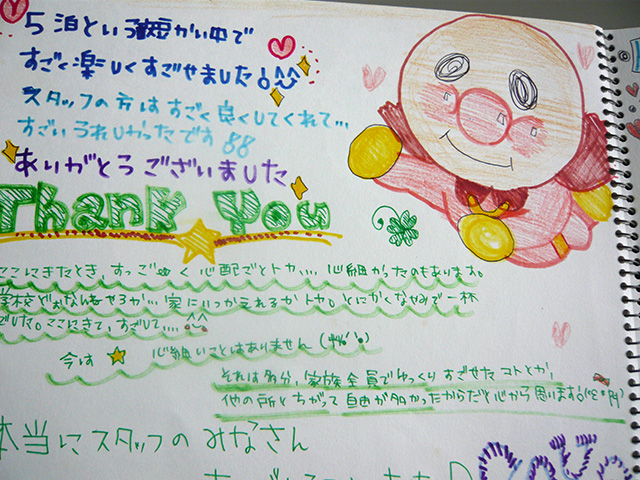 5泊という短かい中で
すごく楽しくすごせました!^^
スタッフの方はすごく良くしてくれて…
すごいうれしかったです
ありがとうございました
Thank You
ここにきたとき、すっごーく心配ごとトカ… 心細かったのもあります。
学校どぉなんねやろか… 家にいつかえれるかトカ。とにかくなやみで一杯
でした。ここにきて、すごして…
今は 心細いことはありません
それは多分、家族全員でゆっくりすごせたコトとか、
他の所とちがって自由が多かったからだと心から思います!
本当にスタッフのみなさん